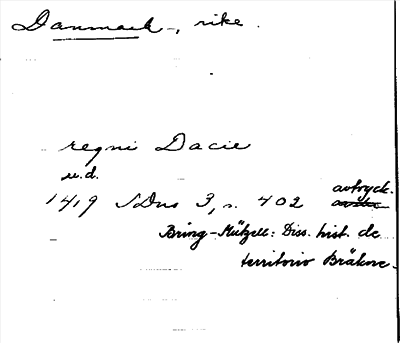 Danmark -, rike.
regni Dacie
u.d.
1419 SDns 3, s. 402 avtryck.
Bring-Mützell: Diss. hist. de
territorio Bräkne.